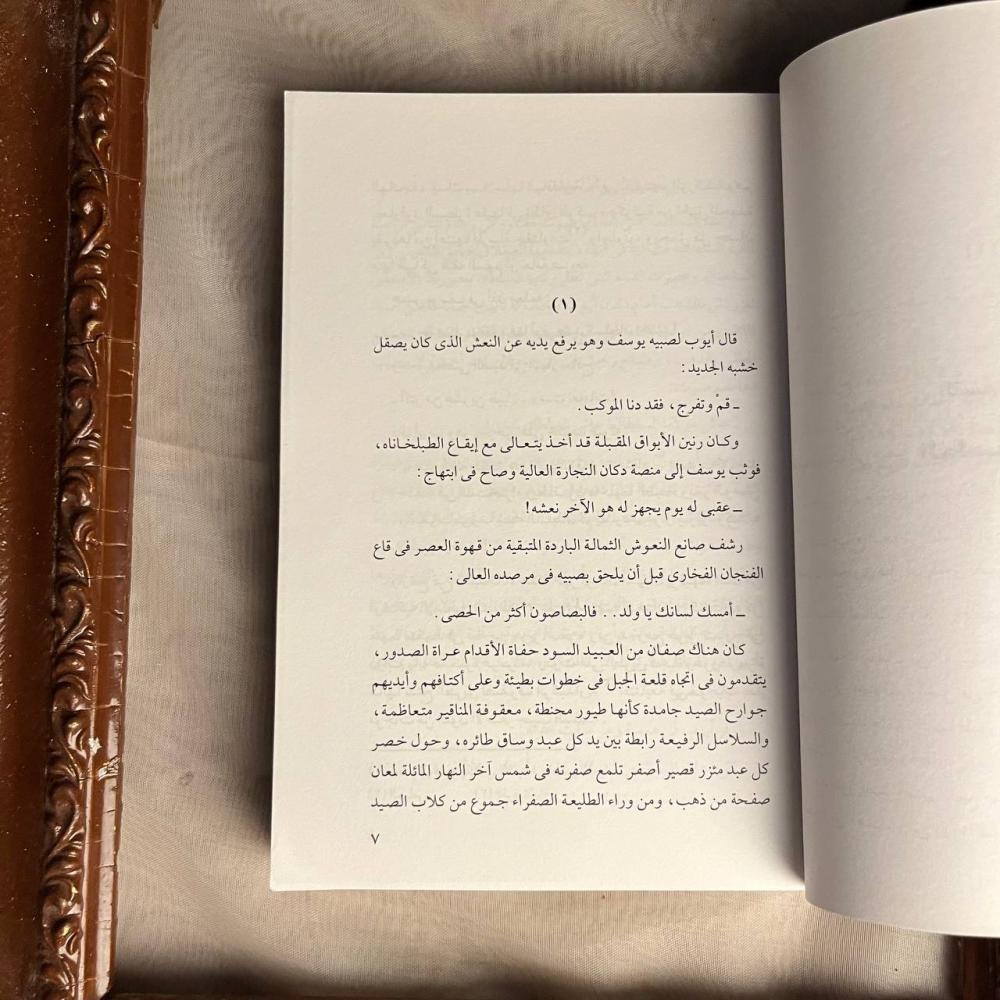 (١)
قال أيوب لصبيه يوسف وهو يرفع يديه عن النعش الذى كان يصقل
خشبه الجديد :
ـ قمْ وتفرج ، فقد دنا الموكب .
وكان رنين الأبواق المقبلة قد أخذ يتعالى مع إيقاع الطبلخاناه ،
فوثب يوسف إلى منصة دكان النجارة العالية وصاح فى ابتهاج :
ـ عقبى له يوم يجهز له هو الآخر نعشه !
رشف صانع النعوش الثمالة الباردة المتبقية من قهوة العصر فى قاع
الفنجان الفخارى قبل أن يلحق بصبيه فى مرصده العالى :
ـ أمسك لسانك يا ولد . . فالبصاصون أكثر من الحصى .
كان هناك صفان من العبيد السود حفاة الأقدام عراة الصدور ،
يتقدمون فى اتجاه قلعة الجبل فى خطوات بطيئة وعلى أكتافهم وأيديهم
جوارح الصيد جامدة كأنها طيور محنطة ، معقوفة المناقير متعاظمة ،
والسلاسل الرفيعة رابطة بين يد كل عبد وساق طائره ، وحول خصر
كل عبد مئزر قصير أصفر تلمع صفرته فى شمس آخر النهار المائلة لمعان
صفحة من ذهب ، ومن وراء الطليعة الصفراء جموع من كلاب الصيد
٧